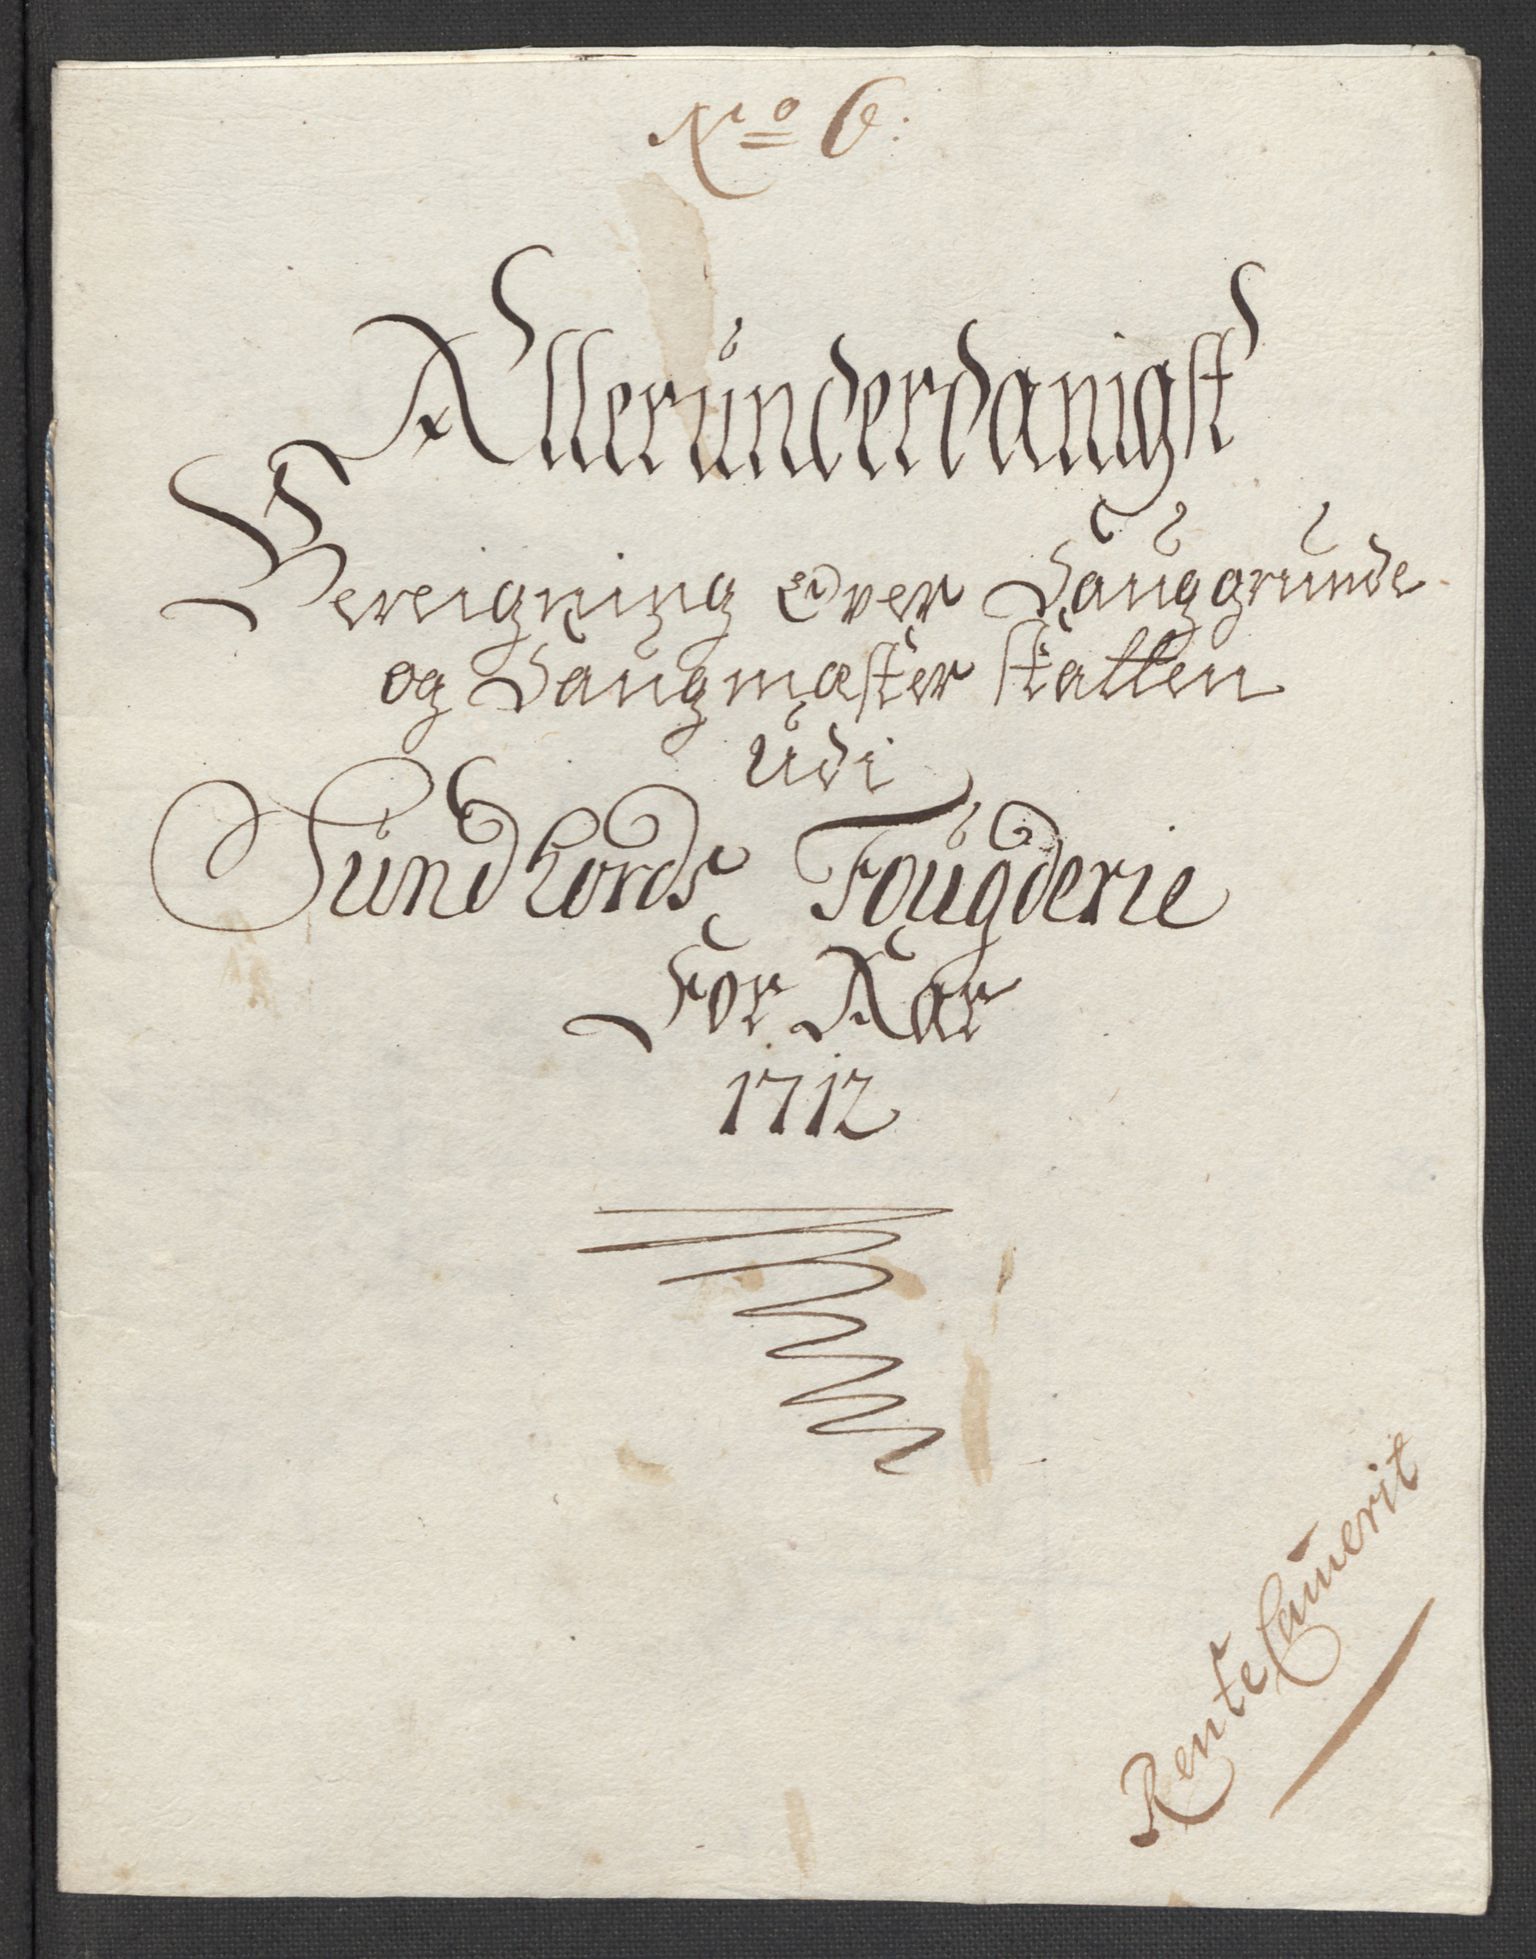 No 6:
Allerunderdanigst
Bereigning Over Sauggrunde
og Saugmæster skatten
Udi
Sundhords Fougderie
For Aar
1712
Rente Camerit